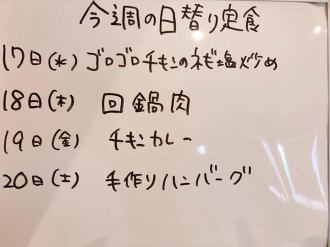 今週の日替り定食
17日(水) ゴロゴロチキンのネギ塩炒め
18日(木) 回鍋肉
19日(金) チキンカレー
20日(土) 手作りハンバーグ